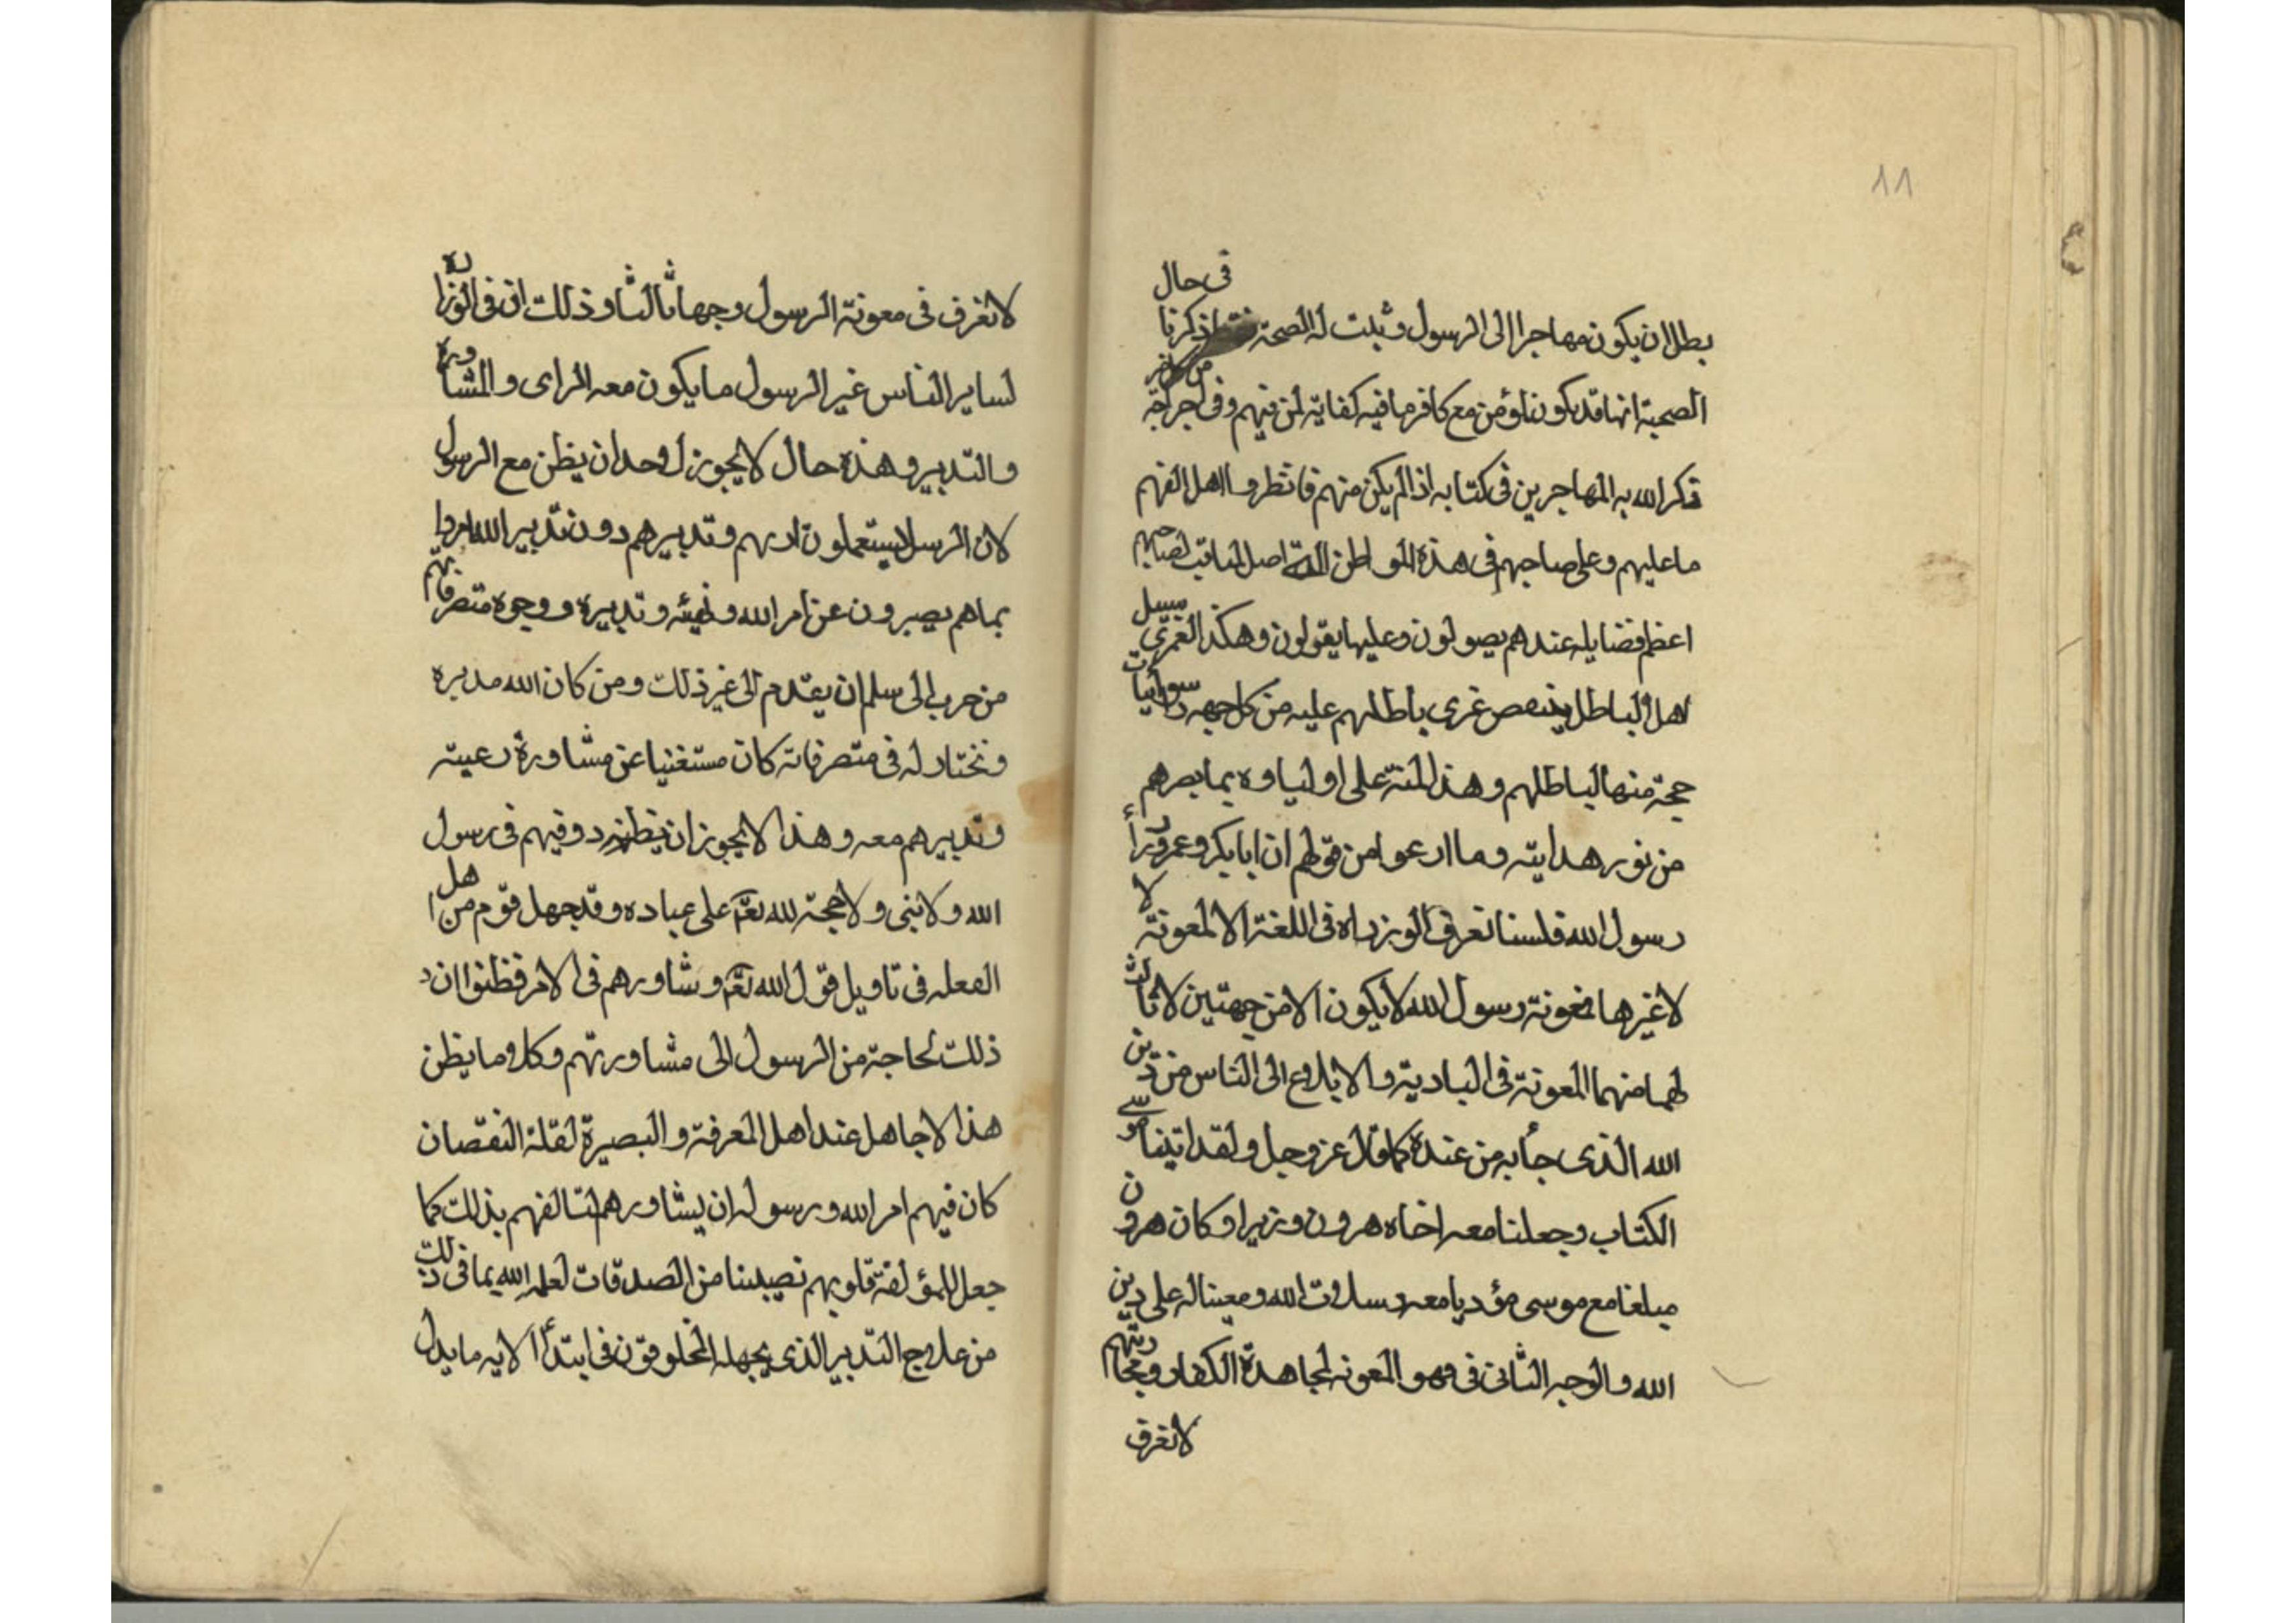 ١١
في حال
بطل ان يكون مهاجرا الى الرسول وثبت له الصحة ذكرنا
الصحبة انها قد يكون من مع كافر ما فيه كفاية لمن فهم وفى
ذكر الله به المهاجرين فى كتابه اذا لم يكن منهم فانظروا اهل الفهم
ما عليهم وعلى صاحبهم فى هذه المواطن اصل المناقب لصاحبهم
اعظم فضايله عندهم يصولون وعليها يقولون وهكذا سبيل
اهل الباطل غرى باطلهم عليه من كل جهه
حجة منها لباطلهم وهذا المنة على اولياوه بما بصرهم
من نور هدايته وما ادعوا من قولهم ان ابا بكر وعمر وزرأ
رسول الله فلسنا نعرف الوزراه فى اللغة الا المعونة لا
لا غيرها فمعونة رسول الله لا يكون الا من جهتين لا ثالث
لهما منهما المعونة فى البادية والا بلاغ الى الناس من دين
الله الذى جأ به من عنده كما قال عز وجل ولقد اتينا موسى
الكتاب وجعلنا معه اخاه هرون وزيرا وكان هرون
مبلغا مع موسى مؤديا معه رسالات الله ومعينا له على دين
الله والوجه الثانى فى وهو المعونه لمجاهدة الكفار ومحاربتهم
لا نعرف
لا نعرف فى معونة الرسول وجها ثالثا وذلك ان فى الوزارة
لساير الناس غير الرسول ما يكون معه الراى والمشاورة
والتدبير وهذه حال لا يجوز لاحد ان يظن مع الرسول
لان الرسل لا يستعملون ارىهم وتدبيرهم دون تدبير الله
بما هم يصبرون عن امر الله ونهيه وتدبيره ووجوه متصرفاتهم
من حرب الى سلم ان يتقدم الى غير ذلك ومن كان الله مدبره
ونختار له فى متصرفاته كان مستغنيا عن مشاورة رعيته
وتدبيرهم معه وهذا لا يجوز ان يظنه ذو فهم فى رسول
الله ولا نبى ولا حجة لله تعالى على عباده وقد جهل قوم من اهل
الفعله فى تاويل قول الله تعالى وشاورهم فى الامر فظنوا ان
ذلك لحاجة من الرسول الى مشاورتهم وكل وما يظن
هذا الا جاهل عند اهل المعرفة والبصيرة لقلة النقصان
كان فيهم امر الله ورسوله ان يشاورهم لتالفهم بذلك كما
جعل للمؤلفة قلوبهم نصيبنا من الصدقات لعلم الله بما فى ذلك
من علاج التدبير الذى يجهله المخلوقون فى ابتدأ الايه ما يدل